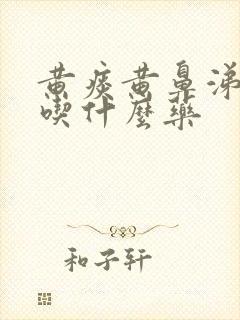 黄痰黄鼻涕
喫什麼藥
和子轩